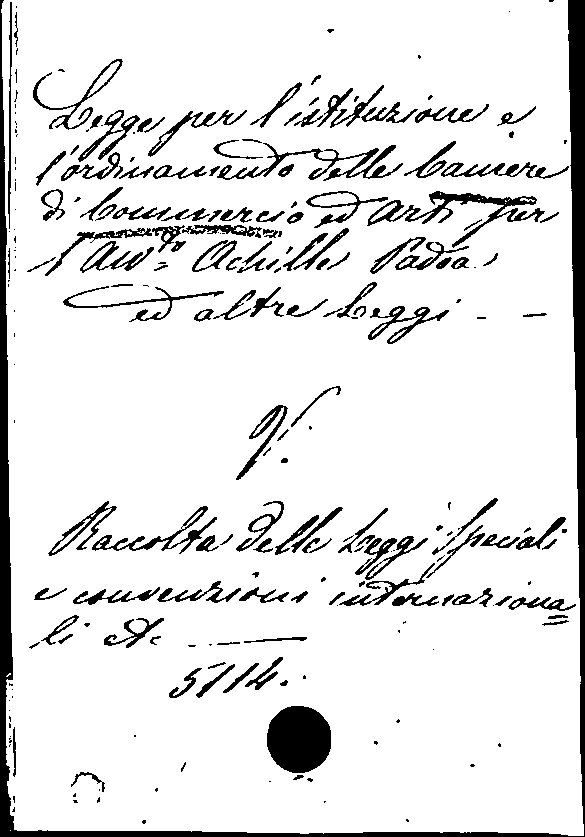 Legge per l'istituzione e
l'ordinamento delle Camere
di Commercio ed Arti per
l'Avv.to Achille Padoa
ed altre Leggi - -
V.
Raccolta delle Leggi Speciali
e convenzioni internaziona=
li &c.
5114.